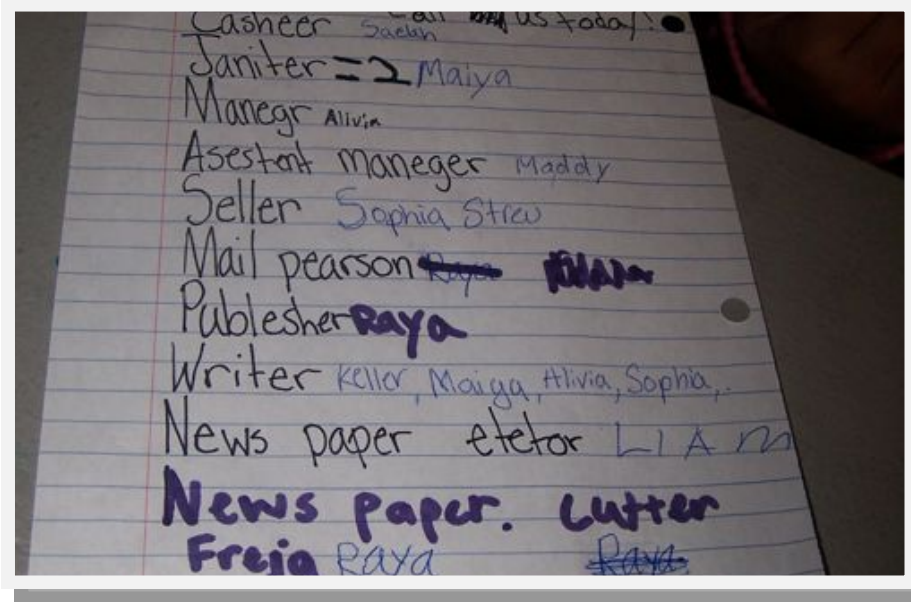 Casheer Saelah Call us today!
Janiter = 2 Maiya
Manegr Alivia
Asestent maneger Maddy
Seller Sophia Streu
Mail pearson
Publesher Raya
Writer Keller, Maiga, Alivia, Sophia,.
News paper etetor LIAM
News paper. Cutter
Freja Raya Raya